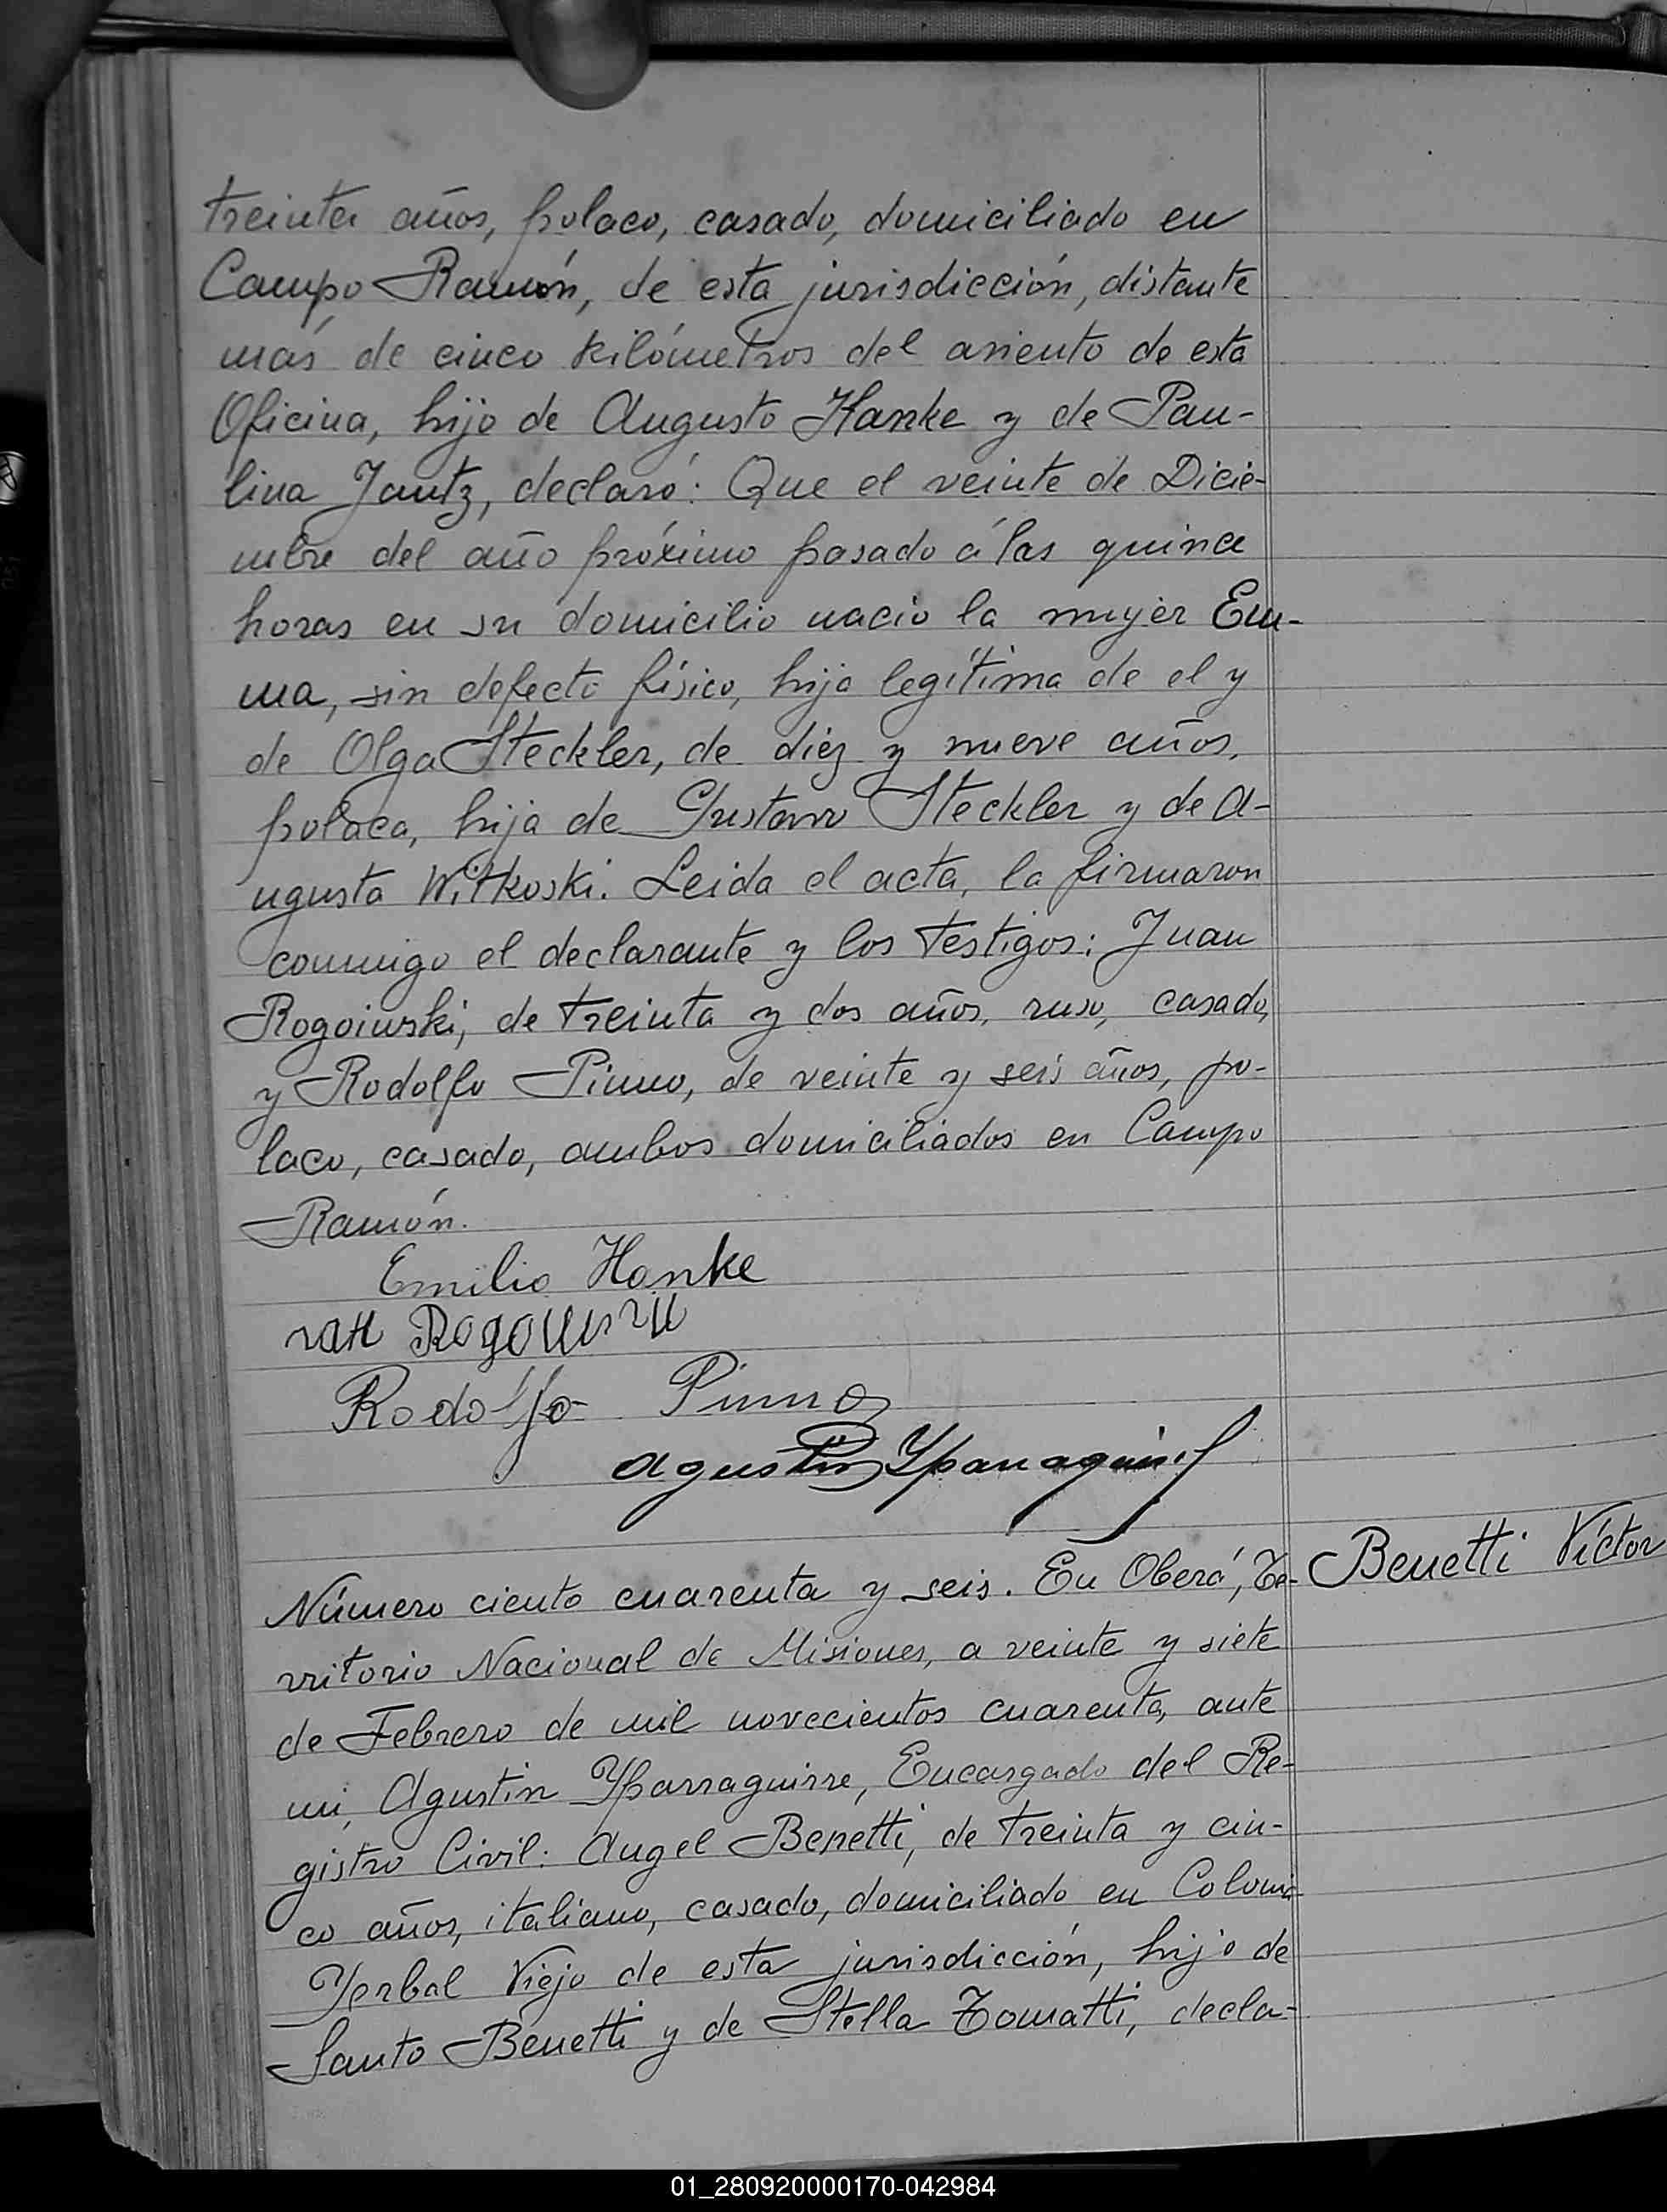 treinta años, polaco, casado, domiciliado en
Campo Ramón, de esta jurisdicción, distante
más de cinco kilómetros del asiento de esta
Oficina, hijo de Augusto Hanke y de Pau-
lina Jantz, declaró: Que el veinte de Dicie-
mbre del año próximo pasado á las quince
horas en su domicilio nació la mujer Em-
ma, sin defecto físico, hija legítima de el y
de Olga Steckler, de diez y nueve años,
polaca, hija de Gustavo Steckler y de A-
ugusta Witkoski. Leida el acta, la firmaron
conmigo el declarante y los testigos: Juan
Rogoiuski, de treinta y dos años, ruso, casado,
y Rodolfo Pinno, de veinte y seis años, po-
laco, casado, ambos domiciliados en Campo
Ramón.
Emilio Hanke
Rodolfo Pinno
Agustin Yparraguirre
Número ciento cuarenta y seis. En Oberá, Te-
Benetti Víctor
rritorio Nacional de Misiones, a veinte y siete
de Febrero de mil novecientos cuarenta, ante
mi, Agustin Yparraguirre, Encargado del Re-
gistro Civil: Angel Benetti, de treinta y cin-
co años, italiano, casado, domiciliado en Colonia
Yerbal Viejo de esta jurisdicción, hijo de
Santo Benetti y de Stella Tomatti, decla-
01_280920000170-042984